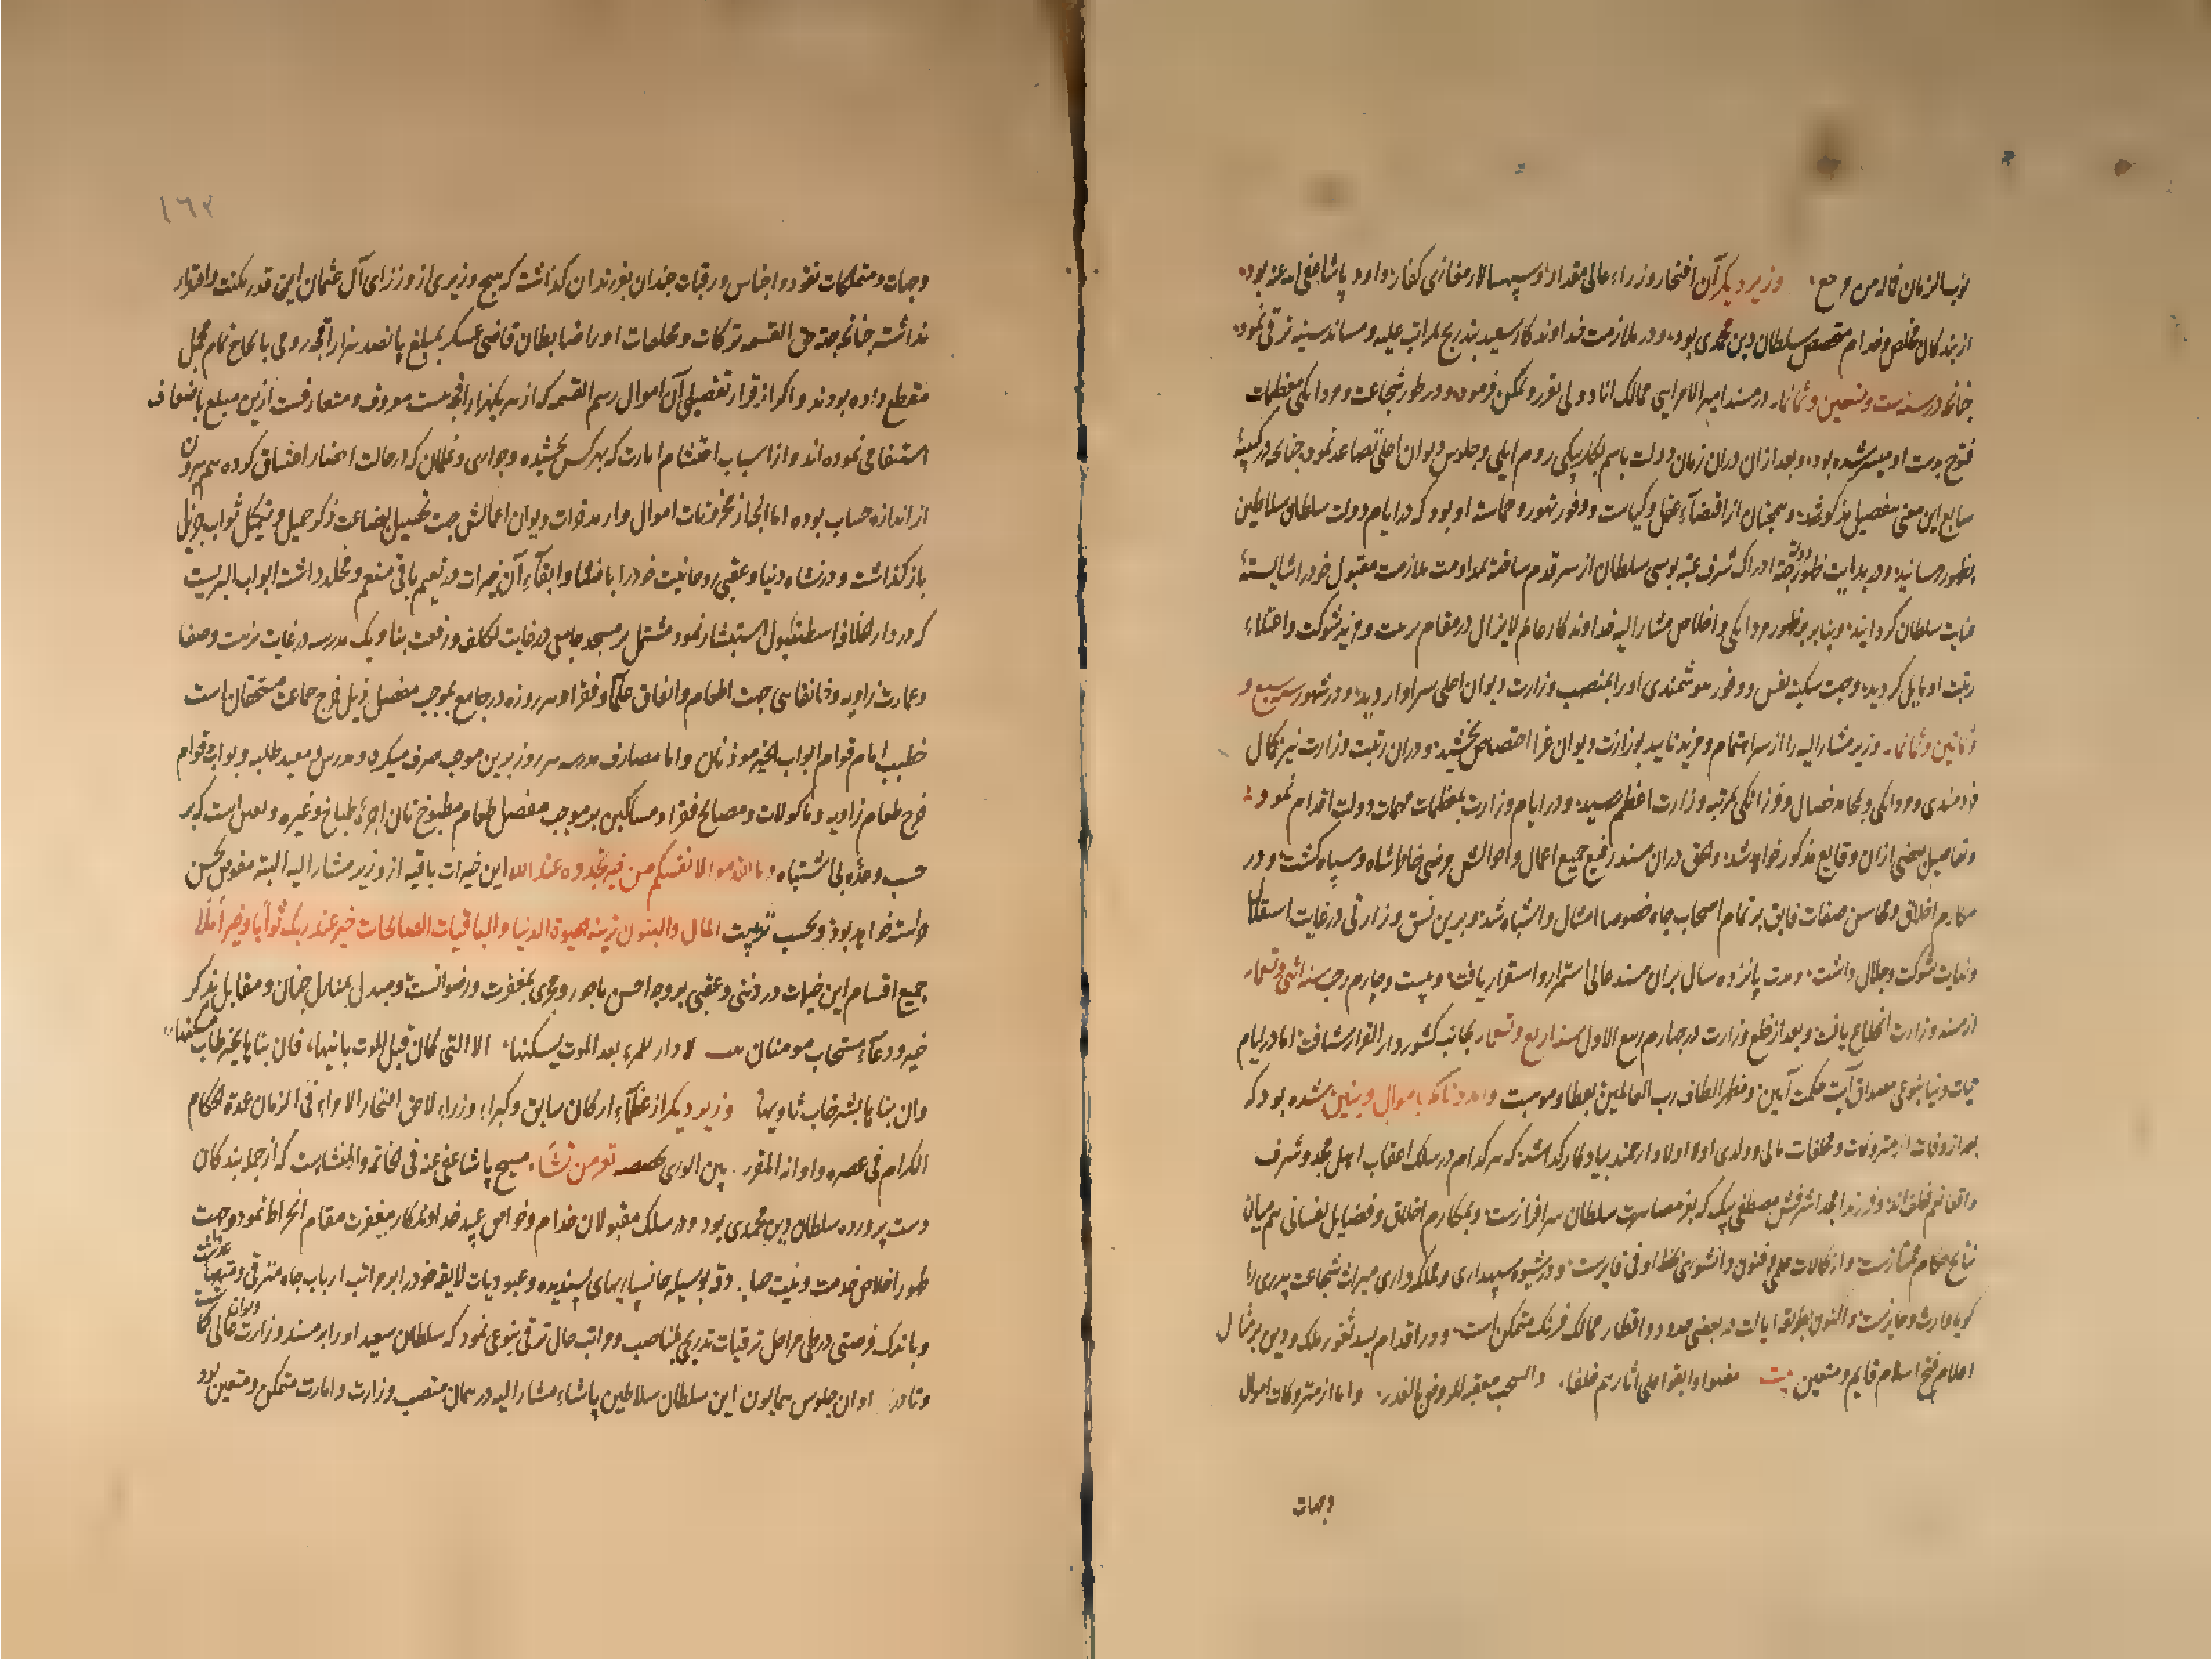 وزیر دیکر آن افتخار وزراء عالی مقدار و سپهسالار مغازی کفار داود پاشا
از بندکان مخلص و خدام متخصص سلطان دین محمدی بوده و در ملازمت خداوندکار سعید بتدریج بمراتب علیه و مساند سنیه ترقی نموده
چنانچه در سنه ست و سبعین و ثمانمایه در مسند امیر الامرایی ممالک اناطولی تقرر و تمکن فرموده و در طور شجاعت و مردانکی معظمات
فتوح بدست او میسر شده بود و بعد از ان در ان زمان دولت باسم بکلربیکی روم ایلی و جلوس دیوان اعلی تصاعد نمود چنانچه در کتیبه
سابع این معنی بتفصیل مذکور شد و همچنان از اقتضاء عقل و کیاست و وفور تهور و حماست او بود که در ایام دولت سلطان سلاطین
بظهور رسانید و در بدایت ظهور دولت ادراک شرف عتبه بوسی سلطان از سر قدم ساخته بمداومت ملازمت مقبول خود را شایسته
عنایت سلطان کردانید و بنابر وظهور مردانکی و اخلاص مشار الیه خداوندکار عالم لایزال در مقام مرحمت و مزید شوکت و اعتلاء
رتبت او مایل کردید و جهت سکینه نفس و وفور هوشمندی او را بمنصب وزارت دیوان اعلی سزاوار دید و در شهور سنه سبع و
ثمانین و ثمانمایه وزیر مشار الیه را از سر اهتمام و مزید تایید بوزارت دیوان غرا اختصاص بخشید و در ان رتبت وزارت نیز کمال
خردمندی و مردانکی و محامد خصال و فرزانکی بمرتبه وزارت اعظم رسید و در ایام وزارت بمعظمات مهمات دولت اقدام نمود
و تفاصیل بعضی از ان وقایع مذکور خواهد شد و الحق در ان مسند رفیع جمیع اعمال و احوالش مرضی خاطر شاه و سپاه کشت و در
مکارم اخلاق و محاسن صفات فایق بر تمام اصحاب جاه خصوصا امثال و اشباه شد و برین نسق وزارتی در غایت استقلال
و نهایت شوکت و جلال داشت و مدت پانزده سال بران مسند عالی استمرار و استقرار یافت و بیست و چهارم رجب سنه اثنی و تسعمایه
از مسند وزارت انخلاع یافت و بعد از خلع وزارت در چهارم ربیع الاول سنه اربع و تسعمایه بجانب کشور دار القرار شتافت اما در ایام
حیات دنیا بنوعی مصداق آیت حکمت آیین و مظهر الطاف رب العالمین بعطا و موهبت وامددناکم باموال وبنین شده بود که
بعد از وفات از متروکات و مخلفات مالی و ولدی او را اولاد ارجمند بیادکار کداشت که هر کدام در سلک اعقاب اهل مجد و شرف
و فرزند امجد اشرفش مصطفی بیک که بعز مصاهرت سلطان سرافراز است و بمکارم اخلاق و فضایل نفسانی هم میان
نتایج حکام ممتاز است و از کمالات علمی و فنون دانشوری بحظ اوفی فایز است و در شیوه سپهداری و مملکه داری میراث شجاعت پدری را
کویا وارث و حایز است و الیوم بطریقه ایالت در بعضی حدود و اقطار ممالک فرنک متمکن است و در اقدام بسد ثغور ملک و دین بر مثال
اعلام فتح اسلام قایم و متعین بیت مضوا وابقوا علی آثارهم خلفاء والسحب معقبه للروض بالغدر و اما از متروکات اموال
وجهات
١٦٣
وجهات و متملکات نقود و اجناس و رقبات چندان بفرزندان کذاشت که هیچ وزیری از وزرای آل عثمان این قدر مکنت و اقتدار
نداشته چنانچه جهة حق القسمه ترکات و مخلفات او را ضابطان قاضی عسکر بمبلغ پانصد هزار اقچه رومی بالحاح تمام مجمل
مقطع داده بودند و اکر از قرار تفصیلی آن اموال رسم القسمه که از هر یکهزار اقچه بیست معروف و متعارفست ازین مبلغ باضعاف
استیفا می نموده اند و از اسباب احتشام امارت که بهر کس بخشیده و جواری و غلمان که در حالت احتضار اعتاق کرده هم بیرون
از اندازه حساب بوده اما انجه از مخزونات اموال و از مدخرات دیوان اعمالش جهت تحصیل بضاعت ذکر جمیل و تکمیل ثواب جزیل
باز کذاشت و در نشاه دنیا و عقبی روحانیت خود را بانشا و ابقاء آن خیرات در نعیم باقی منعم و مخلد داشت ابواب البریست
که در دار الخلافه اسطنبول استبشار نمود مشتمل بر مسجد جامعی در غایت تکلف و رفعت بنا و یک مدرسه در غایت نزهت و صفا
و عمارت زاویه و خانقاهی جهت اطعام و انفاق علما و فقرا و هر روزه در جامع بموجب مفصل ذیل خرج جماعت مستحقان است
خطیب امام قوام ابواب الخیر موذنان و اما مصارف مدرسه هر روز برین موجب صرف میکرد و مدرس و معید طلبه و بواب و قوام
خرج طعام زاویه و ماکولات و مصالح فقرا و مساکین بر موجب مفصل طعام مطبوخ نان اجرة طباخ و غیره و یقین است که بر
حسب وعده بی اشتباه وما تقدموا لانفسکم من خیر تجدوه عند الله این خیرات باقیه از وزیر مشار الیه البته مقرون بحسن
خواهد بود و بحسب ترتیب المال والبنون زینه الحیوة الدنیا والباقیات الصالحات خیر عند ربک ثوابا وخیر املا
جمیع اقسام این خیرات در دنیی و عقبی بر وجه احسن ماجور و مجزی بمغفرت و رضوانست و مبدل بمنازل جنان و مقابل بذکر
خیر و دعاء مستجاب مومنان بیت لا دار للمرء بعد الموت یسکنها الا التی کان قبل الموت بانیها فان بناها بخیر طاب مسکنها
وان بناها بشر خاب ثاویها وزیر دیکر از عظماء ارکان سابق و کبراء وزراء لاحق افتخار الامراء فی الزمان عمدة الحکام
الکرام فی عصره واوانه المقرر بین الوری تعز من تشاء مسیح پاشا عفی عنه فی الخاتمه والمنشاست که از جمله بندکان
دست پرورده سلطان دین محمدی بود و در سلک مقبولان خدام و خواص عبید خداوندکار مغفرت مقام انخراط نمود و جهت
طور اخلاص خدمت و نیت بوسیله جانسپاریهای پسندیده و عبودیات لایقه خود را بر مراتب ارباب جاه مترقی
و باندک فرصتی در طی مراحل ترقیات تدریجی بمناصب و مراتب حال ترقی بنوعی نمود که سلطان سعید او را بر مسند وزارت دیوان عالی
اوان جلوس همایون این سلطان سلاطین پاشاء مشار الیه در همان منصب وزارت و امارت متمکن و متعین بود